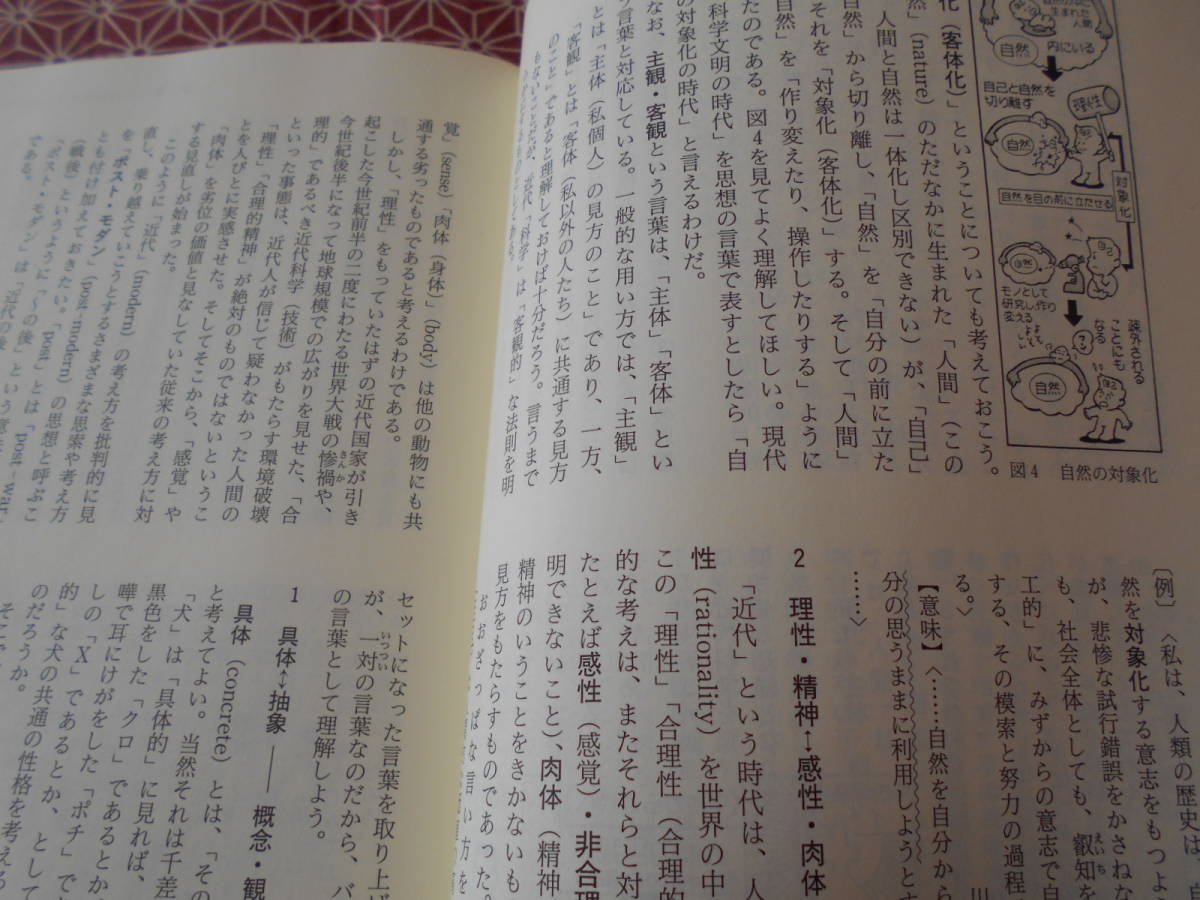 化（客体化）」ということについても考えておこう。
人間と自然は一体化し区別できない）が、「自己」
然」(nature) のただなかに生まれた「人間」（この
自然」から切り離し、「自然」を「自分の前に立た
それを「対象化（客体化）」する。そして「人間」
自然」を「作り変えたり、操作したりする」ように
たのである。図4を見てよく理解してほしい。現代
科学文明の時代」を思想の言葉で表すとしたら「自
の対象化の時代」と言えるわけだ。
なお、主観・客観という言葉は、「主体」「客体」とい
う言葉と対応している。一般的な用い方では、「主観」
とは「主体（私個人）の見方のこと」であり、一方、
「客観」とは「客体（私以外の人たち）に共通する見方
のこと」であると理解しておけば十分だろう。言うまで
もないことだが、近代「科学」は「客観的」な法則を明
生まれた
人間
自然
内にいる
自己と自然を
切り離す
理性
自然
自然を目の前に立たせる
対象化
自然
モノとして
研究し作り
変える
疎外される
ことにも
なる
自然
図4 自然の対象化
〔例〕〈私は、人類の歴史は、自
然を対象化する意志をもつよう
が、悲惨な試行錯誤をかさねな
も、社会全体としても、叡知を
えいち
工的」に、みずからの意志で自
する、その模索と努力の過程
る。〉
【意味】〈……自然を自分から
分の思うままに利用しようとす
……〉
2 理性・精神↔感性・肉体
「近代」という時代は、人
性（rationality）を世界の中
この「理性」「合理性（合理的
的な考えは、またそれらと対
たとえば感性（感覚）・非合理
明できないこと）、肉体（精神
精神のいうことをきかないも
見方をもたらすものであった。
おおざっぱな言い方を
覚」(sense)「肉体（身体）」(body) は他の動物にも共
通する劣ったものであると考えるわけである。
しかし、「理性」をもっていたはずの近代国家が引き
起こした今世紀前半の二度にわたる世界大戦の惨禍や、
さんか
今世紀後半になって地球規模での広がりを見せた、「合
理的」であるべき近代科学（技術）がもたらす環境破壊
といった事態は、近代人が信じて疑わなかった人間の
「理性」「合理的精神」が絶対のものではないというこ
とを人びとに実感させた。そしてそこから、「感覚」や
「肉体」を劣位の価値と見なしていた従来の考え方に対
する見直しが始まった。
このように「近代」(modern) の考え方を批判的に見
直し、乗り越えていこうとするさまざまな思索や考え方
を「ポスト・モダン」(post-modern) の思想と呼ぶこ
とも付け加えておきたい。「post」とは「post-war
（戦後）」というように「～の後」という意
「ポスト・モダン」は「近代の後」
である。
セットになった言葉を取り上げ
が、一対の言葉なのだから、バ
いっつい
の言葉として理解しよう。
1 具体↔抽象 ―― 概念・観
具体（concrete）とは、「その
と考えてよい。当然それは千差
「犬」は「具体的」に見れば、
黒色をした「クロ」であるとか
嘩で耳にけがをした「ポチ」で
しの「X」であるとか、として
的」な犬の共通の性格を考える
のだろうか。